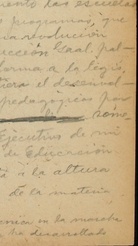 ento las escuelas
programas, que
la revolución
rección Gral. pa
forma a la legis
era el desarrol
pedagógicas por
some
Ejecutivo de mi
de Educación
a la altura
de la materia
en la marcha
ha desarrollado